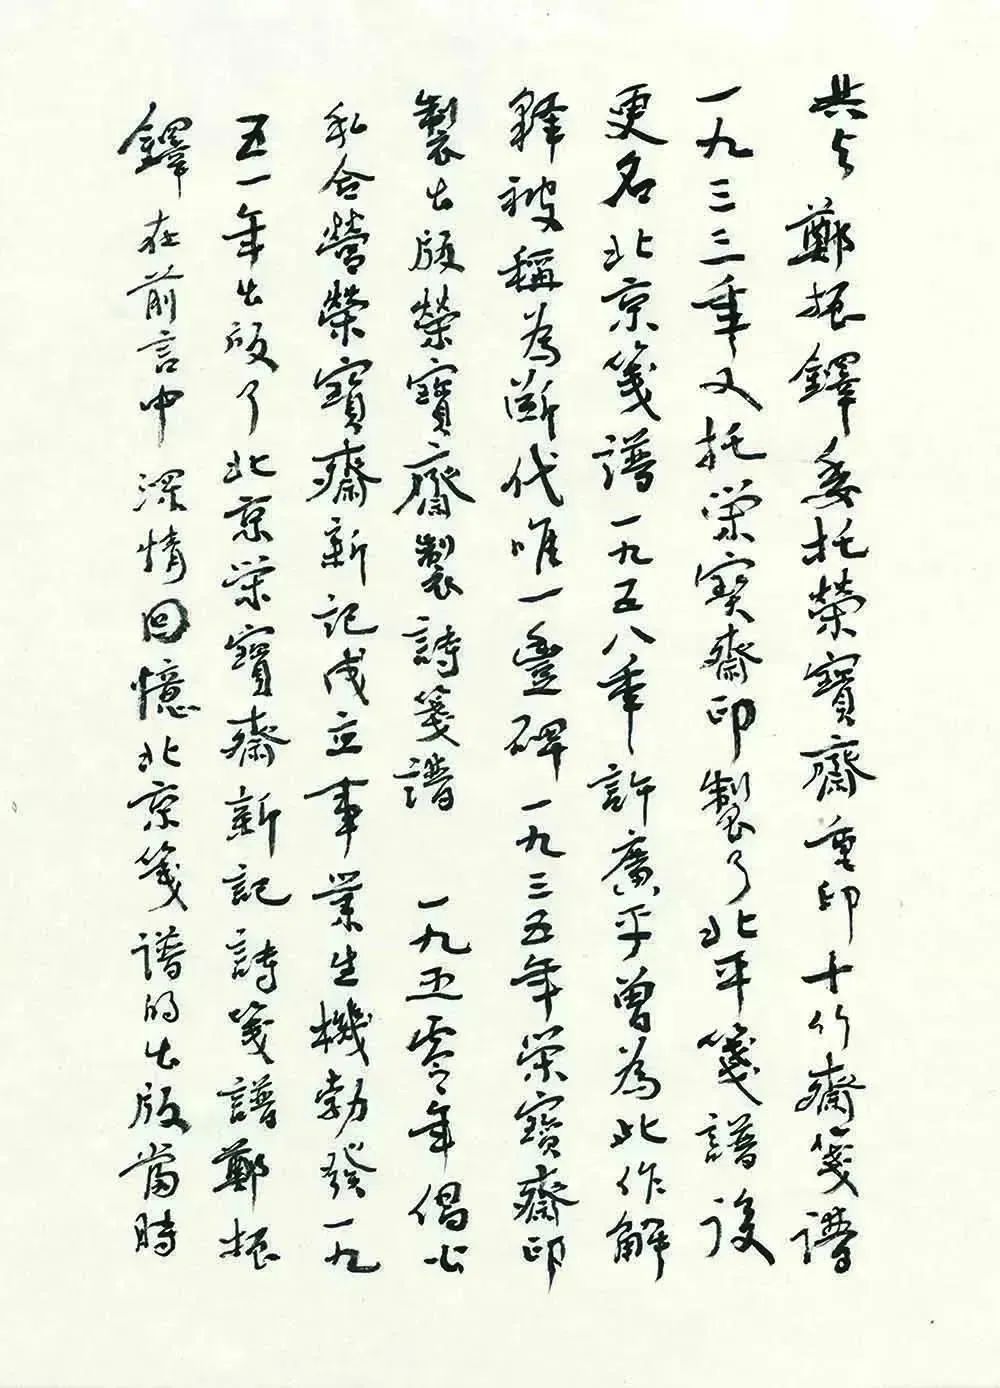 共与鄭振鐸委托榮寶齋重印十竹齋箋譜
一九三三年又托荣寶齋印製了北平箋譜後
更名北京箋譜一九五八年許廣平曾為此作解
釋被稱為斷代唯一豐碑一九三五年荣寳齋印
製出版榮寶齋製詩箋譜 一九五零年倡公
私合營榮寶齋新記成立事業生機勃發一九
五一年出版了北京荣寶齋新記詩箋譜鄭振
鐸在前言中深情回憶北京箋譜的出版當時